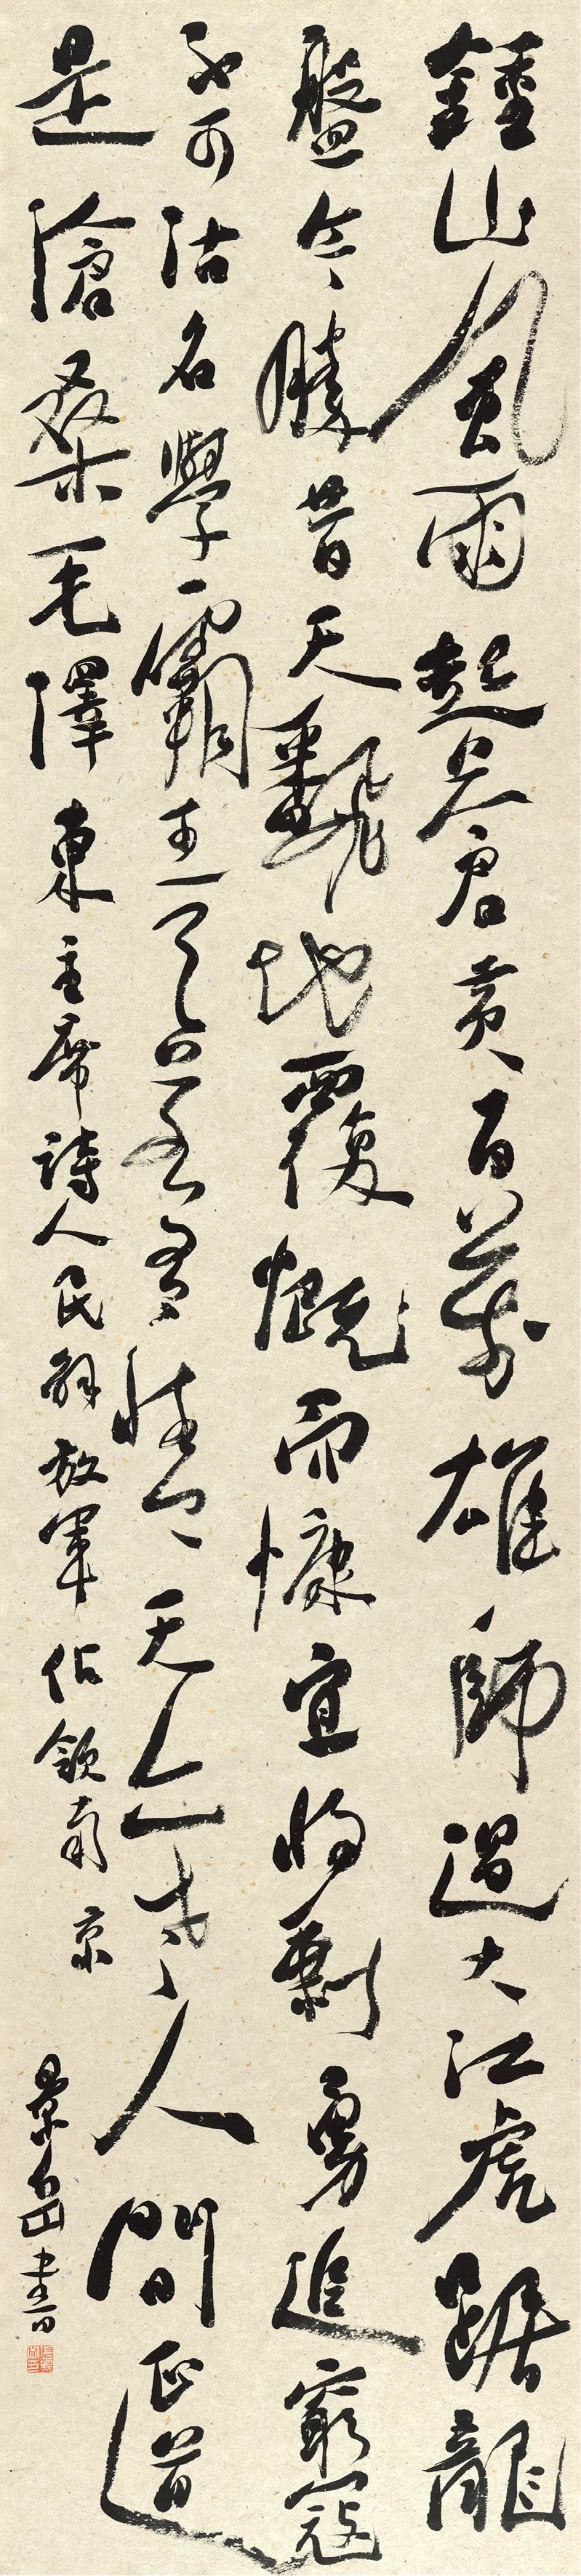 鍾山風雨起倉黃百萬雄師過大江虎踞龍
盤今勝昔天飜地覆慨而慷宜將剩勇追窮寇
不可沽名學霸王天若有情天亦老人間正道
是滄桑毛澤東主席詩人民解放軍佔領南京
書